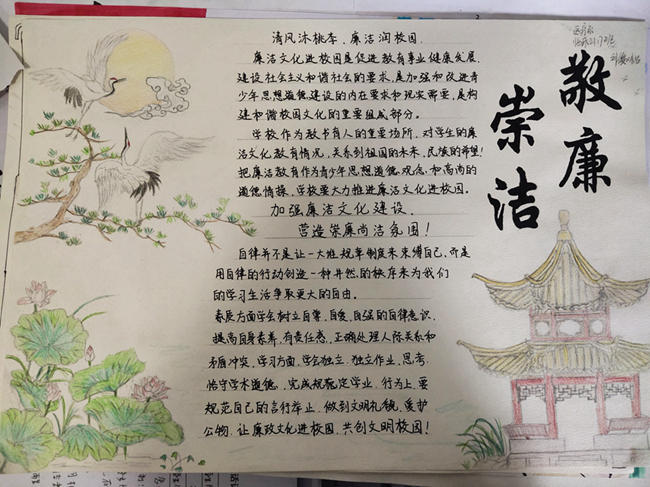 清风沐桃李、廉洁润校园.
廉洁文化进校园是促进教育事业健康发展.
建设社会主义和谐社会的要求,是加强和改进青
少年思想道德建设的内在要求和现实需要,是构
建和谐校园文化的重要组成部分。
学校作为教书育人的重要场所,对学生的廉
洁文化教育情况,关系到祖国的未来、民族的希望!
把廉洁教育作为青少年思想道德观念和高尚的
道德情操,学校要大力推进廉洁文化进校园。
加强廉洁文化建设、
营造崇廉尚洁氛围!
自律并不是让一大堆规章制度来束缚自己,而是
用自律的行动创造一种井然的秩序来为我们
的学习生活争取更大的自由。
素质方面学会树立自尊、自爱、自强的自律意识,
提高自身素养,有责任感,正确处理人际关系和
矛盾冲突,学习方面,学会独立、独立作业、思考,
恪守学术道德,完成规定学业,行为上,要
规范自己的言行举止,做到文明礼貌,爱护
公物,让廉政文化进校园,共创文明校园!
敬廉
崇洁